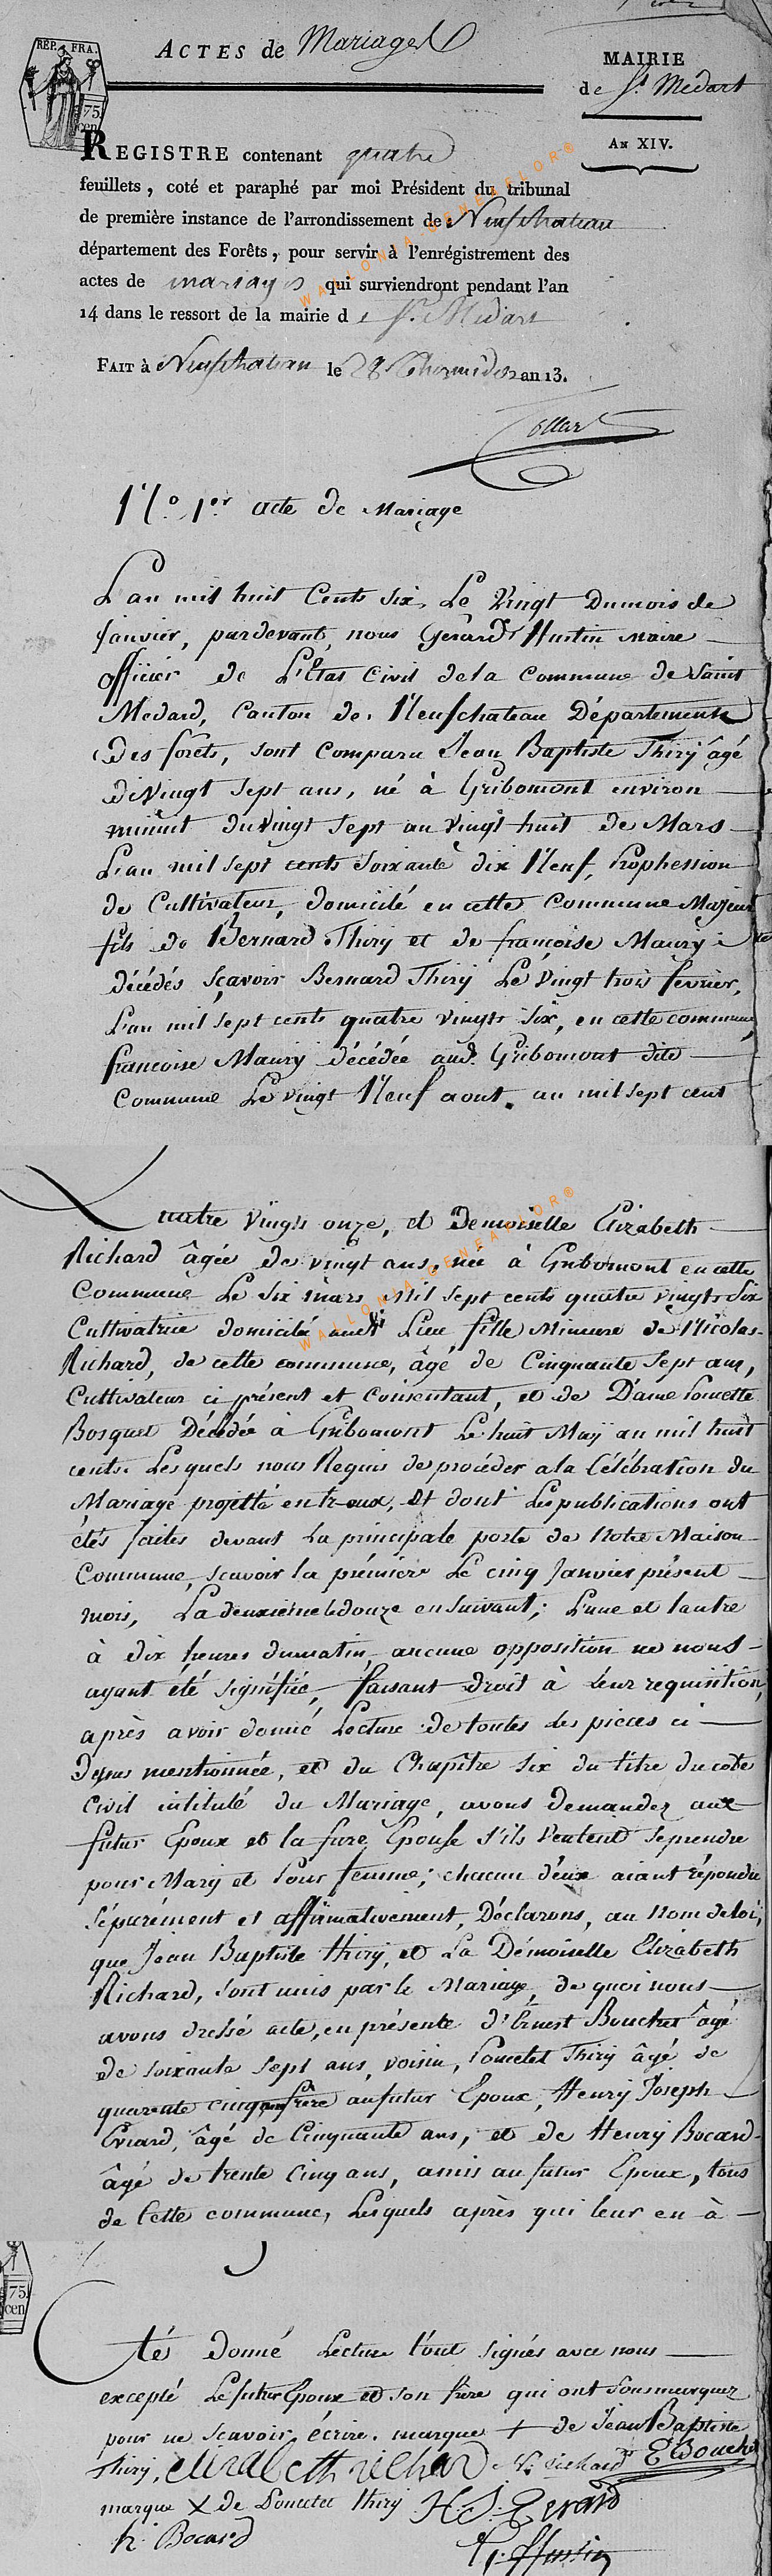 REP. FRA.
75 cen
ACTES de Mariages
MAIRIE
de St. Medart
AN XIV.
REGISTRE contenant quatre
feuillets, coté et paraphé par moi Président du tribunal
de première instance de l'arrondissement de Neufchateau
département des Forêts, pour servir à l'enrégistrement des
actes de mariages qui surviendront pendant l'an
14 dans le ressort de la mairie de St. Medart
FAIT à Neufchateau le 28 Thermidor an 13.
Collar
WALLONIA-GENEAFLOR®
N.o 1.er acte de Mariage
L'an mil huit Cents six, Le Vingt Dumois de
Janvier, pardevant nous Gerard Hustin Maire
officier de L'Etat Civil dela Commune de Saint
Medard, Canton de Neufchateau Département
Des forets, sont comparu Jean Baptiste Thiry âgé
de Vingt Sept ans, né à Gribomont environ
minuit du vingt sept au vingt huit de Mars
L'an mil sept cents soixante dix Neuf, Prophession
de Cultivateur, domicilé en cette commune Majeur
fils de Bernard Thiry et de françoise Maury
décédés sçavoir Bernard Thiry Le vingt trois fevrier,
L'an mil sept cents quatre vingts six, en cette commune
françoise Maury décédée aud. Gribomont dite
Commune Le vingt Neuf aout. an mil sept cent
Quatre vingts onze, et Demoiselle Elizabeth
Richard âgée de vingt ans, née à Gribomont en cette
Commune Le six mars mil sept cents quatre vingts six
Cultivatrice domicilé audt Lieu fille Mineure de Nicolas
Richard, de cette commune, âgé de Cinquante sept ans,
Cultivateur ci présent et consentant, et de Dame Poncette
Bosquet Décédée à Gribomont Le huit May an mil huit
cents. Lesquels nous Requis de procéder ala Célébration du
Mariage projetté entreeux, et dont Les publications ont
étés faites devant La principale porte de Notre Maison
Commune, Scavoir la prémière Le cinq Janvier présent
mois, La deuxieme le douze en suivant; L'une et lautre
à dix heures dumatin, aucune opposition ne nous
ayant été signifiée, faisant droit à leur requisition,
après avoir donné Lecture de toutes les pieces ci
dessus mentionnée, et du Chapitre six du titre du code
Civil intitulé du Mariage, avons demandez aux
futur Epoux et la fure Epouse s'ils Veulent seprendre
pour Mary et Pour femme; chacun d'eux aiant répondu
Séparément et affirmativement, Déclarons, au nom deloi,
que Jean Baptiste thiry, et La Démoiselle Elizabeth
Richard, sont unis par le Mariage, de quoi nous
avons dressé acte, en présente d'Ernest Bouchet âgé
de soixante sept ans, voisin, Poncelet Thiry âgé de
quarente cinq ans frère aufutur Epoux, Henry Joseph
Evrard, âgé de Cinquante ans, et de Henry Bocard
âgé de trente Cinq ans, amis au futur Epoux, tous
de Cette commune, Lesquels après qui leur en à
WALLONIA-GENEAFLOR®
75 cen
étés donné Lecture L'ont signés avec nous
excepté Le futur Epoux et son frère qui ont Sousmarquez
pour ne Scavoir écrire. marque + de Jean Baptiste
Thiry, elizabeth richard N. richard E Bouchet
marque X de Poncelet thiry H. J. Evrard
h. Bocard
G. Hustin